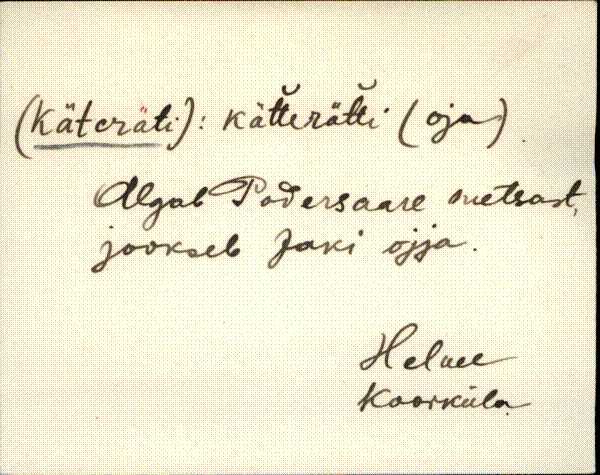 (Käteräti): kätterätti (oja).
Algab Podersaare metsast,
jookseb Jaki ojja.
Helme
Koorküla